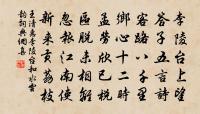 李陵台上望
答子五言詩
客路八千里
鄉心十二時
孟勞欣已稅
區脫未相離
忽報江南使
新來貢荔枝
王清惠李陵台和水雲
韻詞典網書